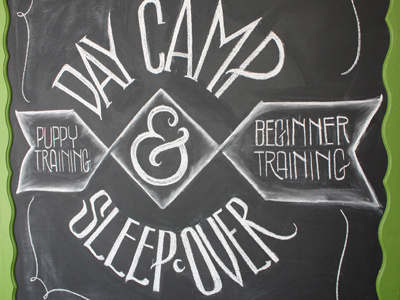 DAY CAMP
PUPPY
TRAINING
&
BEGINNER
TRAINING
SLEEP-OVER